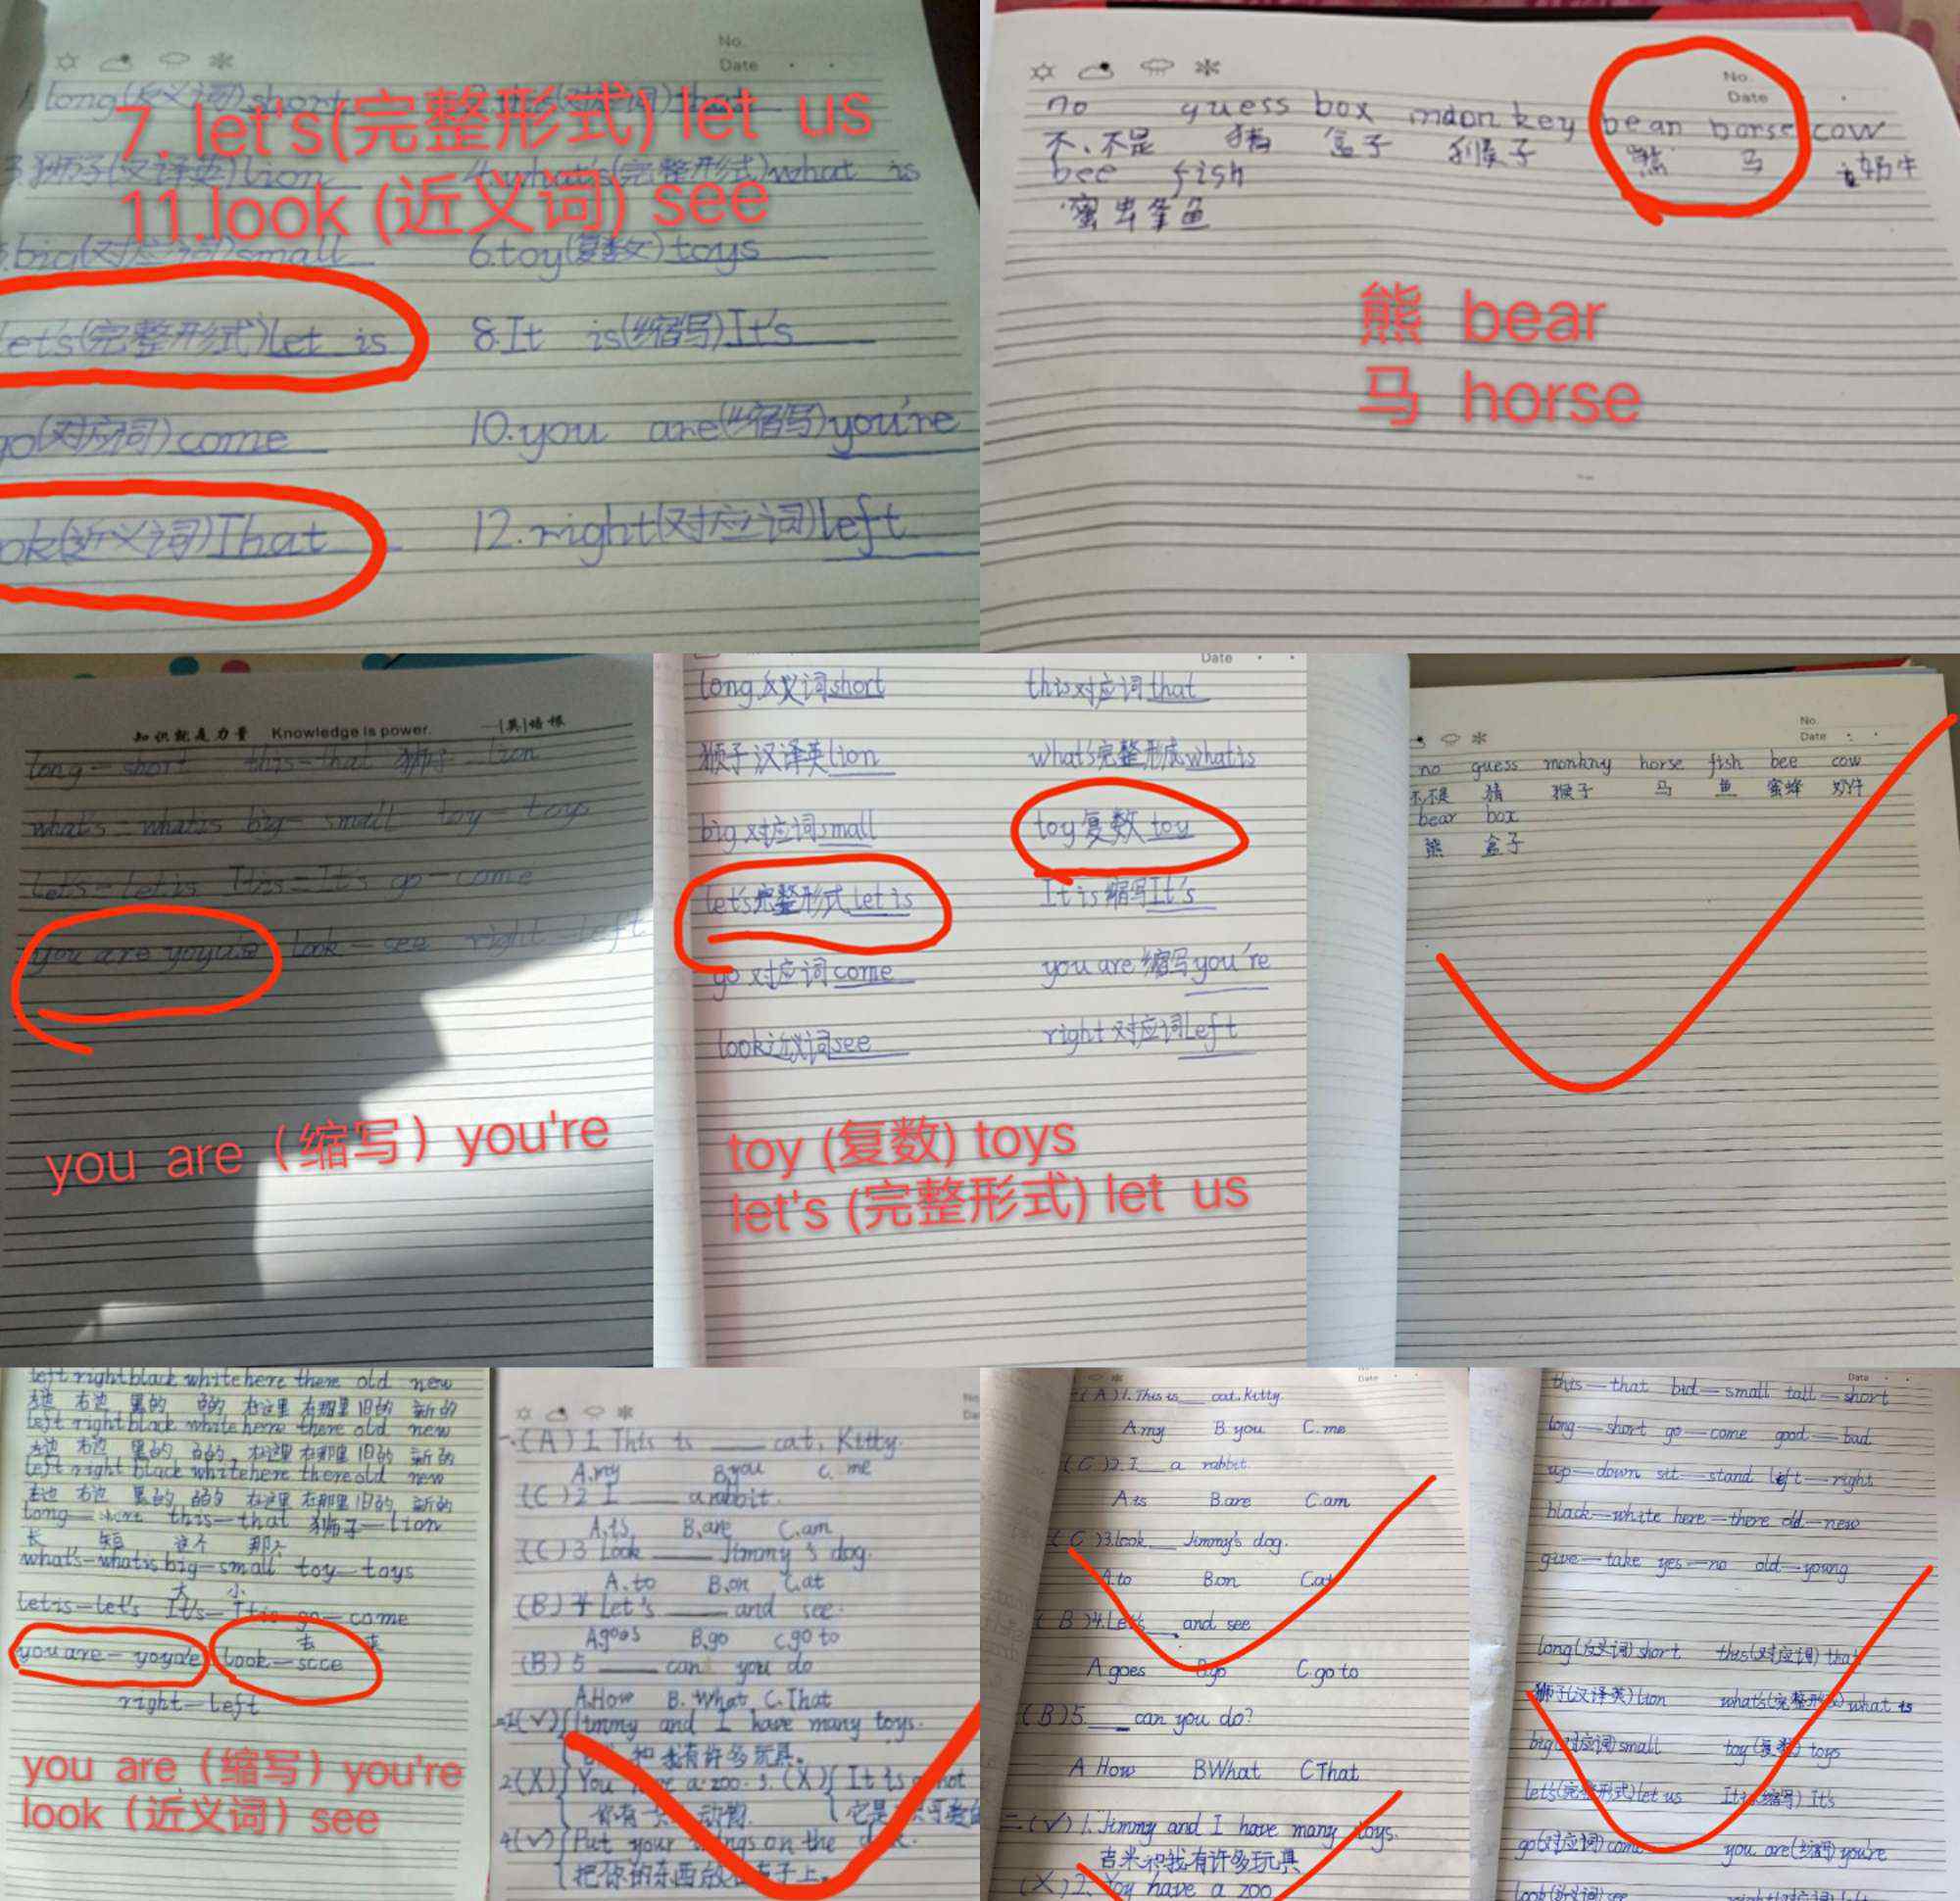 No.
Date
1.long(反义词)short
that
7. let's(完整形式) let us
3.狮子(汉译英)lion
what's(完整形式)what is
11.look (近义词) see
big(对应词)small
6.toy(复数)toys
let's(完整形式)let is
8.It is(缩写)It's
go(对应词)come
10.you are(缩写)you're
ok(近义词)That
12.right(对应词)left
No.
Date
no guess box mdon key bean borse cow
不、不是 猜 盒子 猴子 熊 马 奶牛
bee fish
蜜蜂 鱼
熊 bear
马 horse
知识就是力量 Knowledge is power. —[英]培根
long—short this—that 狮子 lion
what's whatis big—small toy—toys
let's—let is It is=It's go—come
you are yoyure look—see right left
you are（缩写）you're
Date
long反义词short this对应词that
狮子汉译英lion what's完整形式whatis
big对应词small toy复数toy
let's完整形式let is It is缩写It's
go对应词come you are缩写you're
look近义词see right对应词Left
toy (复数) toys
let's (完整形式) let us
No.
Date
no guess monkny horse fish bee cow
不,不是 猜 猴子 马 鱼 蜜蜂 奶牛
bear box
熊 盒子
left right black white here there old new
左边 右边 黑的 白的 在这里 在那里 旧的 新的
left right black white here there old new
左边 右边 黑的 白的 在这里 在那里 旧的 新的
left right black white here there old new
左边 右边 黑的 白的 在这里 在那里 旧的 新的
long—short this—that 狮子—lion
长 短 这个 那个
what's—whatis big—small toy—toys
大 小
letis—let's It's—It is go—come
去 来
you are—yoyo're look—scce
right—left
you are（缩写）you're
look（近义词）see
一.(A)1.This is ____ cat, Kitty.
A.my B.you C.me
(C)2 I ____ a rabbit.
A.is B.are C.am
(C)3 Look ____ Jimmy's dog.
A.to B.on C.at
(B)4 Let's ____ and see.
A.goos B.go C.go to
(B)5 ____ can you do
A.How B.What C.That
二1(√) Jimmy and I have many toys.
和我有许多玩具。
2(X) You have a zoo. 3.(X) It is not
4(√) Put your things on the desk.
把你的东西放在桌子上。
Date
(A)1.This is___ cat, Kitty.
A.my B.you C.me
(C)2.I___ a rabbit.
A.is B.are C.am
(C)3.look___ Jimmy's dog.
A.to B.on C.at
(B)4.Let's___ and see
A.goes B.go C.go to
(B)5___can you do?
A How BWhat CThat
二(√)1.Jimmy and I have many toys.
吉米和我有许多玩具
(X)2.Yoy have a zoo
Date
this—that bid—small tall—short
long—short go—come good—bad
up—down sit—stand left—right
black—white here—there old—new
give—take yes—no old—young
long(反义词)short this(对应词)that
狮子(汉译英)lion what's(完整形式)what is
big(对应词)small toy(复数)toys
let's(完整形式)let us It is(缩写)It's
go(对应词)come you are(缩写)you're
look(近义词)see right(对应词)left